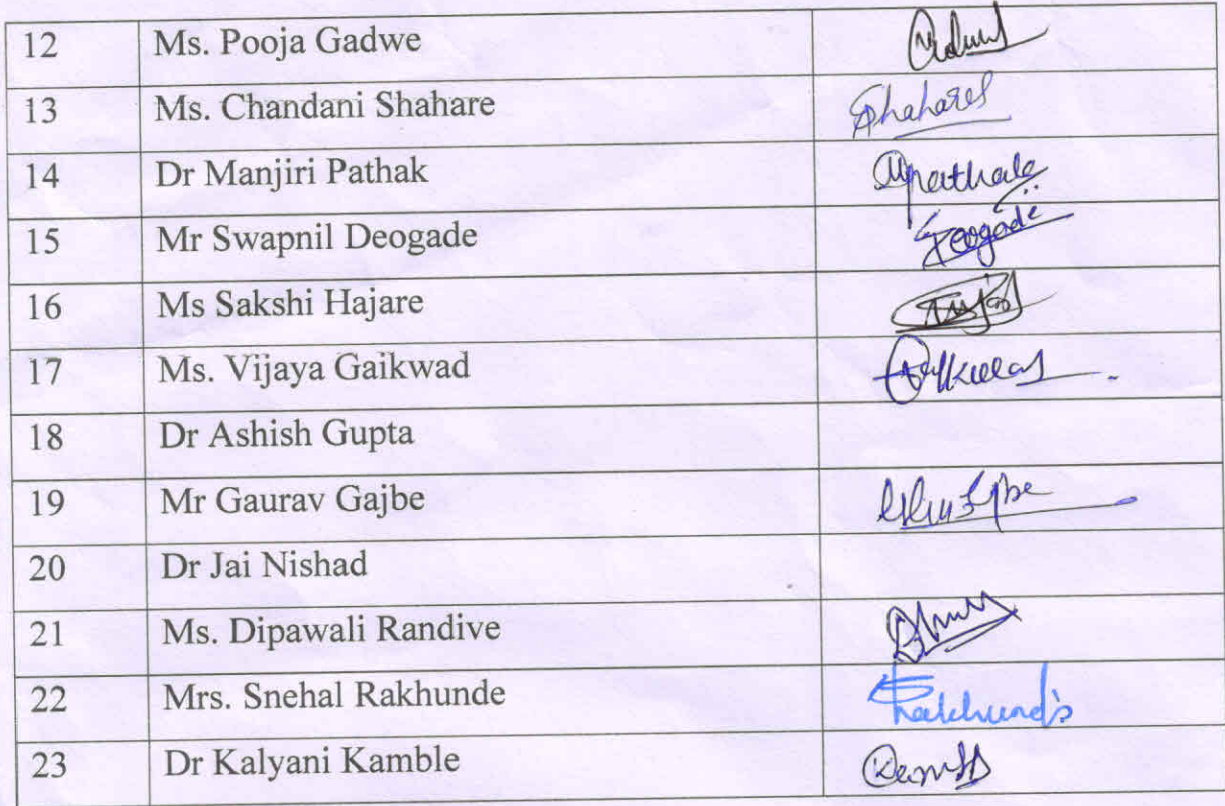 12 Ms. Pooja Gadwe
13 Ms. Chandani Shahare Shahares
14 Dr Manjiri Pathak
15 Mr Swapnil Deogade Deogade
16 Ms Sakshi Hajare
17 Ms. Vijaya Gaikwad
18 Dr Ashish Gupta
19 Mr Gaurav Gajbe
20 Dr Jai Nishad
21 Ms. Dipawali Randive
22 Mrs. Snehal Rakhunde
23 Dr Kalyani Kamble